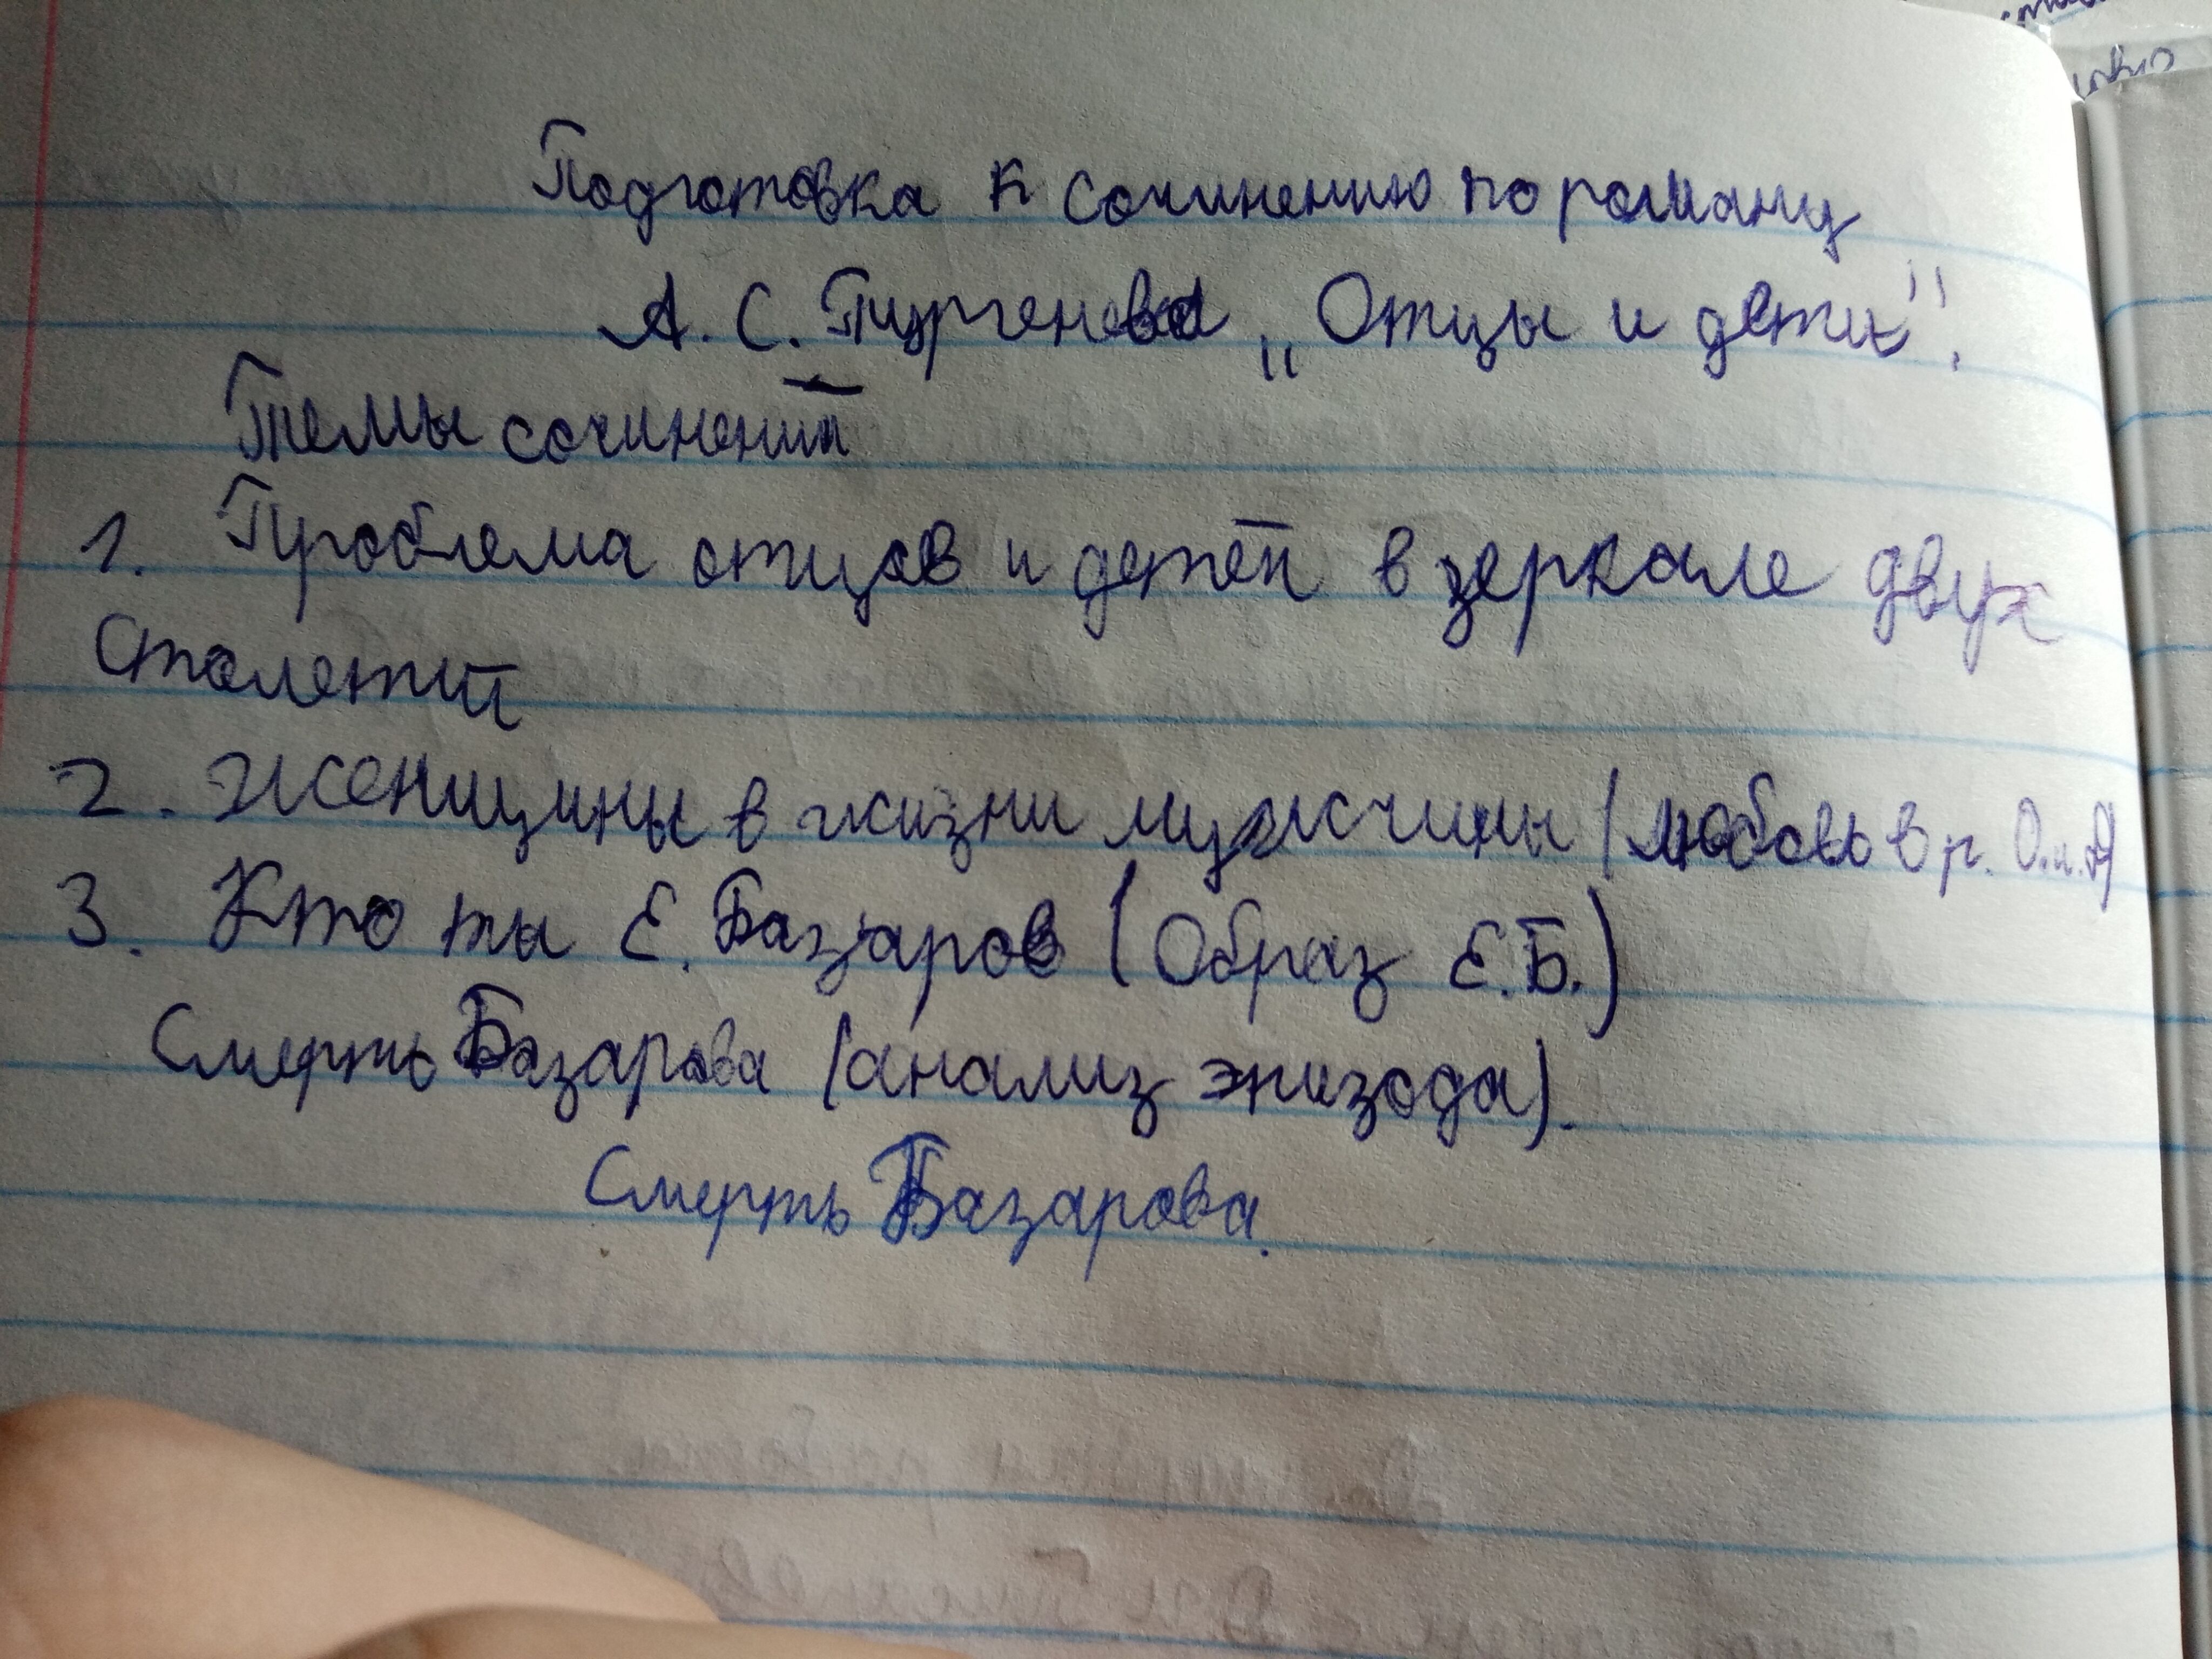 Подготовка к сочинению по роману
А. С. Тургенева „Отцы и дети".
Темы сочинений
1. Проблема отцов и детей в зеркале двух
столетий
2. Женщины в жизни мужчины (любовь в р. О.и.Д)
3. Кто ты Е. Базаров (Образ Е.Б.)
Смерть Базарова (анализ эпизода).
Смерть Базарова.